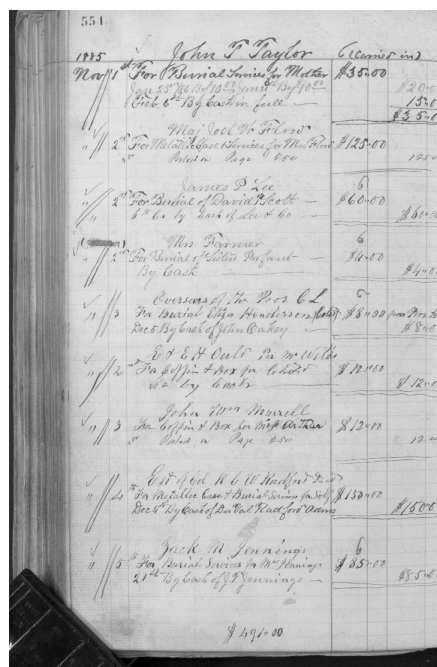 554
1885 John T Taylor (Carried in)
Nov 1st For Burial Services for Mother $35.00
Jan 25th 86 By 10.00 By 10.00 $20.00
Feb 6th By Cash in full — 15.00
$35.00
Maj Joel
" " 2nd For Metallic Case & Services for Mrs $125.00
Posted on Page 250 125.0
James P. Lee 6
" " 2nd For Burial of David P. Scott — $60.00
6th Co by Cash of Lee & Co — $60.0
Mrs Farmer 6
" 2nd For Burial of Sisters Infant — $4.00
By Cash $4.0
Overseers of The Poor C L 6
" 3 For Burial Eliza Henderson $8.00
Dec 5 By Cash of John Oakey — $8.0
E & E H Per Mr Wills
" 2nd For Coffin & Box for Child $12.00
by Cash $12.0
John Wm Murrell
" 3 For Coffin & Box for Miss Arthur $12.00
Posted on Page 250 12.0
Est of Col R C W Radford
" 4th For Metallic Case & Burial Services for Self $150.00
Dec 4th By Cash of Radford Adms $150.0
Zack M Jennings 6
" 5th For Burial Services for Mrs Jennings $85.00
21st By Cash of J T Jennings — $85.0
$491.00